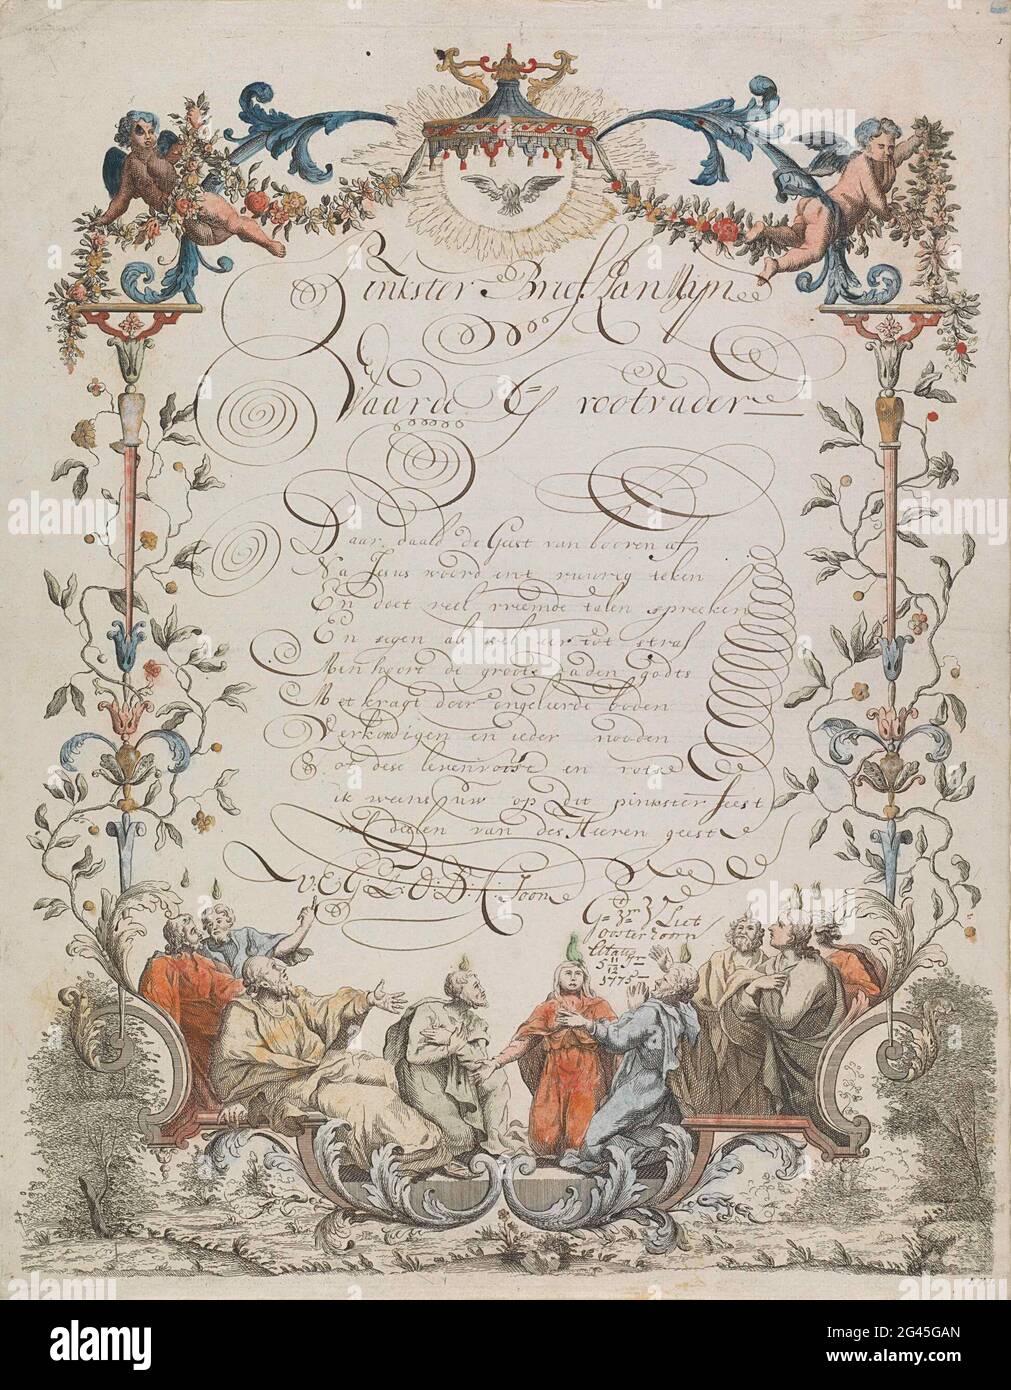 Pinkster Brief Aan Mijn
Waarde Grootvader
Daar daald de Geest van booven af
Na Jesus woord ent vuurig teken
En doet veel vreemde talen spreeken
En segen als wel eer tot straf
Men hoort de groote daden godts
Met kragt door ongeleerde boden
Verkondigen en ieder nooden
Tot dese levenvorst en rots
ik wens uw op Dit pinkster feest
veel deelen van des Heeren geest
V: E: G: Z: O: D: Soon
G=3= Z Liet
oosterzoom
5 11/12
1775
alamy
Image ID: 2G45GAN
www.alamy.com